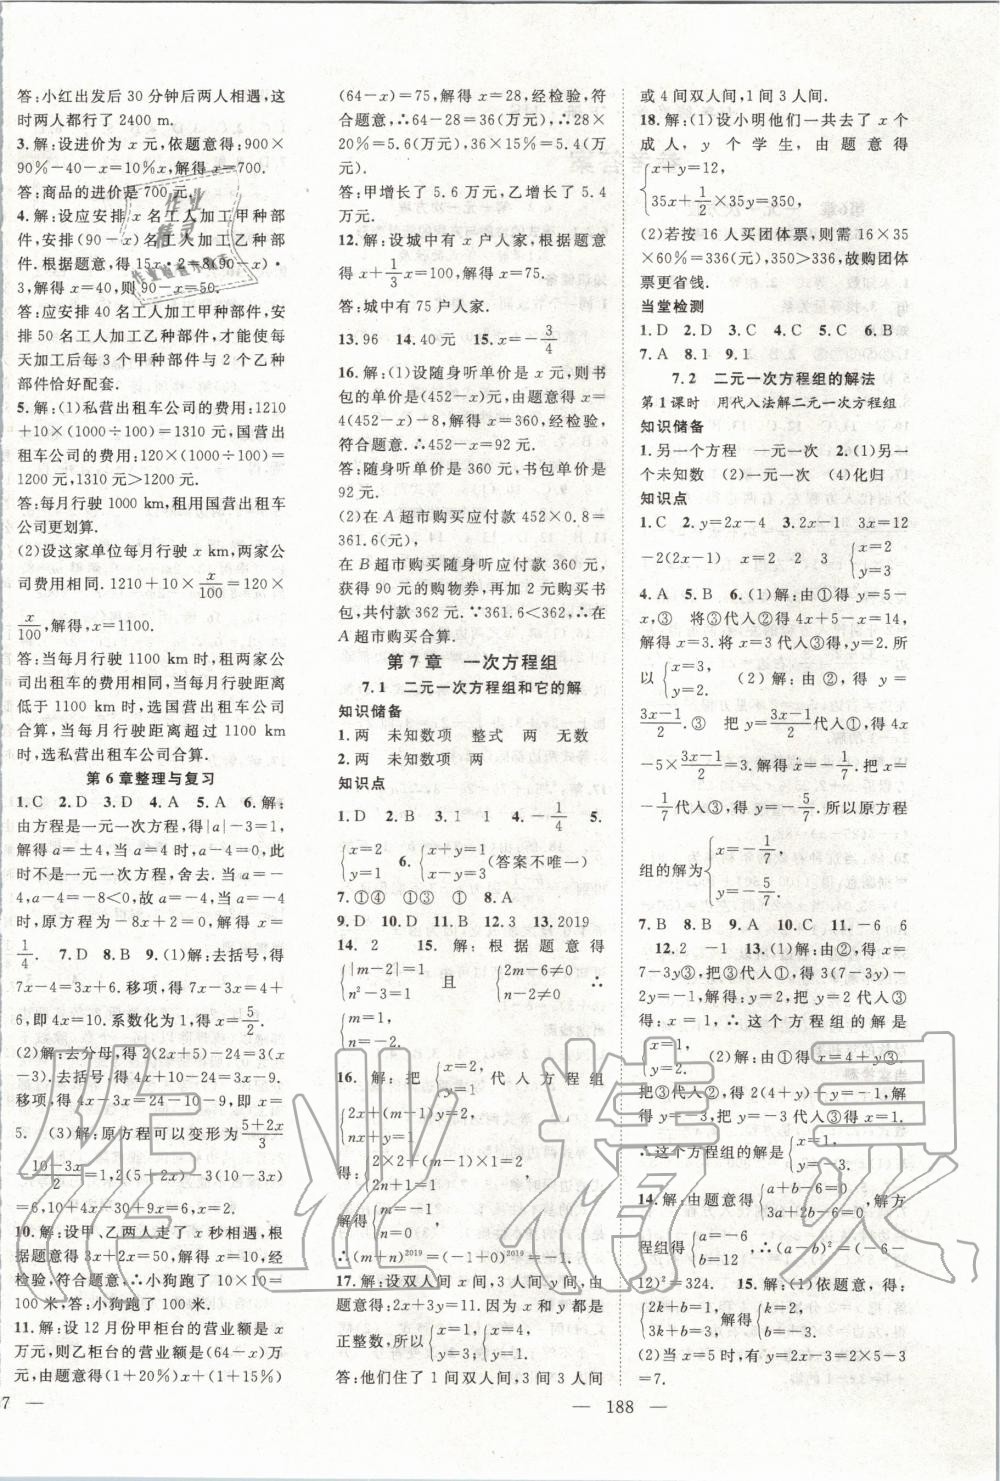 答:小红出发后 30 分钟后两人相遇,此
时两人都行了 2400 m.
3. 解:设进价为 x 元,依题意得:900×
90%-40-x=10%x,解得 x=700.
答:商品的进价是 700 元.
4. 解:设应安排 x 名工人加工甲种部
件,安排(90-x)名工人加工乙种部
件.根据题意,得 15x·2=8(90-x)·
3,解得 x=40,则 90-x=50.
答:应安排 40 名工人加工甲种部件,安
排 50 名工人加工乙种部件,才能使每
天加工后每 3 个甲种部件与 2 个乙种
部件恰好配套.
5. 解:(1)私营出租车公司的费用:1210
+10×(1000÷100)=1310 元,国营出
租车公司的费用:120×(1000÷100)=
1200 元,1310 元>1200 元.
答:每月行驶 1000 km,租用国营出租车
公司更划算.
(2)设这家单位每月行驶 x km,两家公
司费用相同. 1210+10×x/100=120×
x/100,解得,x=1100.
答:当每月行驶 1100 km 时,租两家公
司出租车的费用相同,当每月行驶距离
低于 1100 km 时,选国营出租车公司合
算,当每月行驶距离超过 1100 km
时,选私营出租车公司合算.
第 6 章整理与复习
1. C 2. D 3. D 4. A 5. A 6. 解:
由方程是一元一次方程,得|a|-3=1,
解得 a=±4,当 a=4 时,a-4=0,此
时不是一元一次方程,舍去.当 a=-
4,a-4=-8<0,故 a=-4,当 a=-4
时,原方程为-8x+2=0,解得 x=
1/4. 7. D 8. B 9. (1)解:去括号,得
7x-4=3x+6. 移项,得 7x-3x=4+
6,即 4x=10. 系数化为 1,得 x=5/2.
(2)解:去分母,得 2(2x+5)-24=3(3-
x). 去括号,得 4x+10-24=3x-9.
移项,得 4x-3x=24-9-10,解得 x=
5. (3)解:原方程可以变形为(5+2x)/3
-(10-3x)/2=1,2(5+2x)-3(10-3x)
=6,10+4x-30+9x=6,解得 x=2.
10. 解:设甲、乙两人走了 x 秒相遇,根
据题意得 3x+2x=50,解得 x=10,经
检验,符合题意,∴小狗跑了 10×10=
100 米.答:小狗跑了 100 米.
11. 解:设 12 月份甲柜台的营业额是 x
万元,则乙柜台的营业额是(64-x)万
元,由题意得(1+20%)x+(1+15%)
(64-x)=75,解得 x=28,经检验,符
合题意,∴64-28=36(万元),28×
20%=5.6(万元),36×15%=5.4(万
元).
答:甲增长了 5.6 万元,乙增长了 5.4
万元.
12. 解:设城中有 x 户人家,根据题意
得 x+1/3x=100,解得 x=75.
答:城中有 75 户人家.
13. 96 14. 40 元 15. x=-3/4
16. 解:(1)设随身听单价是 x 元,则书
包的单价是(452-x)元,由题意得 x=
4(452-x)-8,解得 x=360,经检验,
符合题意.∴452-x=92.
答:随身听单价是 360 元,书包单价是
92 元.
(2)在 A 超市购买应付款 452×0.8=
361.6(元),
在 B 超市购买随身听应付 360 元,获
得 90 元的购物券,再加 2 元购买书
包,共付款 362 元. ∵361.6<362,∴在
A 超市购买合算.
第 7 章 一次方程组
7.1 二元一次方程组和它的解
知识储备
1. 两 未知数项 整式 两 无数
2. 两 未知数项 两
知识点
1. D 2. B 3. 1 1 4. -1/4 5.
{x=2 y=1 6. {x+y=1 x-y=3 (答案不唯一)
7. ①④ ①③ ① 8. A
9. D 10. D 11. B 12. 3 13. 2019
14. 2 15. 解:根据题意得
{|m-2|=1 n²-3=1 且 {2m-6≠0 n-2≠0 ∴
{m=1, n=-2.
16. 解:把{x=2, y=1 代入方程组
{2x+(m-1)y=2, nx+y=1,
得:{2×2+(m-1)×1=2 2n+1=1
解得{m=-1, n=0
∴(m+n)²⁰¹⁹=(-1+0)²⁰¹⁹=-1.
17. 解:设双人间 x 间,3 人间 y 间,由
题意得:2x+3y=11. 因为 x 和 y 都是
正整数,所以{x=1, y=3, {x=4, y=1.
答:他们住了 1 间双人间,3 间 3 人间
或 4 间双人间,1 间 3 人间.
18. 解:(1)设小明他们一共去了 x 个
成人,y 个学生,由题意得
{x+y=12, 35x+1/2×35y=350.
(2)若按 16 人买团体票,则需 16×35
×60%=336(元),350>336,故购团体
票更省钱.
当堂检测
1. D 2. D 3. C 4. C 5. C 6. B
7. A 8. 1 9. 1
7.2 二元一次方程组的解法
第 1 课时 用代入法解二元一次方程组
知识储备
1. 另一个方程 一元一次 2. (1)另一
个未知数 (2)一元一次 (4)化归
知识点
1. C 2. y=2x-4 3. 2x-1 3x=12
-2(2x-1) x=2 2 3 {x=2 y=3
4. A 5. B 6. (1)解:由①得 y=5-
x,③ 将③代入②得 4x+5-x=14,
解得 x=3. 将 x=3 代入③,得 y=2. 所
以{x=3, y=2. (2)解:由②,得 y=
(3x-1)/2.③ 把 y=(3x-1)/2代入①,得 4x
-5×(3x-1)/2=3,解得 x=-1/7. 把 x=-
1/7代入③,得 y=-5/7. 所以原方程
组的解为{x=-1/7, y=-5/7.
7. B 8. B 9. A 10. C 11. -6 6
12. 2 -1 13. (1)解:由②,得 x=
7-3y③,把③代入①,得 3(7-3y)-
2y=10,解得:y=2,把 y=2 代入③
得:x=1,∴这个方程组的解是
{x=1, y=2. (2)解:由①得 x=4+y③.
把③代入②,得 2(4+y)+y=-1,解
得 y=-3. 把 y=-3 代入③,得 x=1.
∴这个方程组的解是{x=1. y=-3.
14. 解:由题意得{a+b-6=0 3a+2b-6=0,解方
程组得{a=-6 b=12,∴(a-b)²=(-6-
12)²=324. 15. 解:(1)依题意,得:
{2k+b=1 3k+b=3 解得{k=2, b=-3.
(2)当 x=5 时,y=2x-3=2×5-3
=7.
7
188
作业精灵
作业精灵